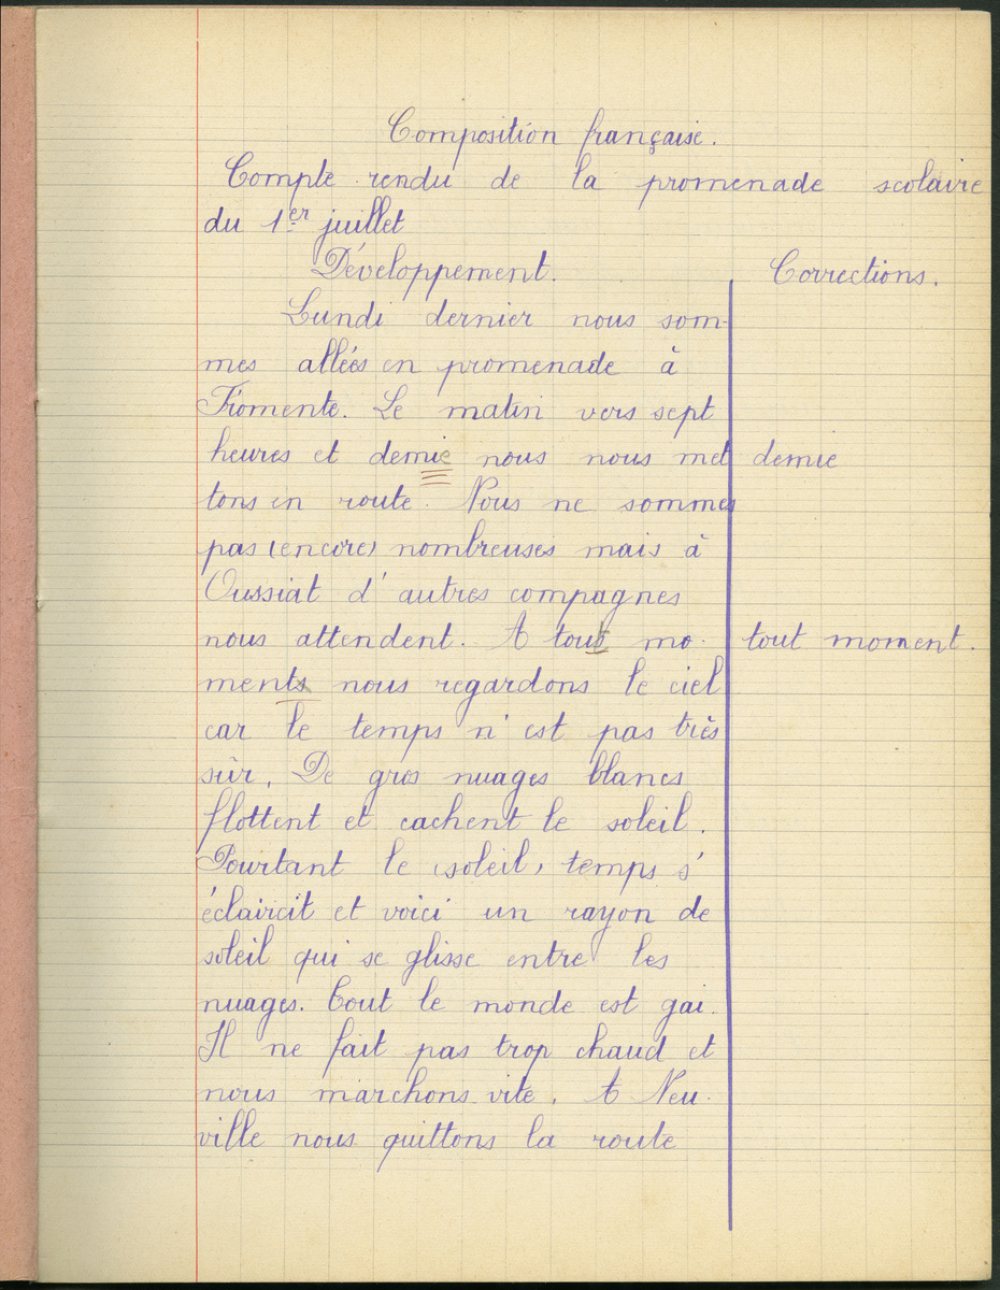 Composition française.
Compte rendu de la promenade scolaire
du 1er juillet
Développement.
Corrections.
Lundi dernier nous som-
mes allées en promenade à
Fromente. Le matin vers sept
heures et demie nous nous met
demie
tons en route. Nous ne sommes
pas (encore) nombreuses mais à
Oussiat d'autres compagnes
nous attendent. A tout mo-
tout moment.
ments nous regardons le ciel
car le temps n'est pas très
sûr. De gros nuages blancs
flottent et cachent le soleil.
Pourtant le (soleil) temps s'
éclaircit et voici un rayon de
soleil qui se glisse entre les
nuages. Tout le monde est gai.
Il ne fait pas trop chaud et
nous marchons vite. A Neu-
ville nous quittons la route